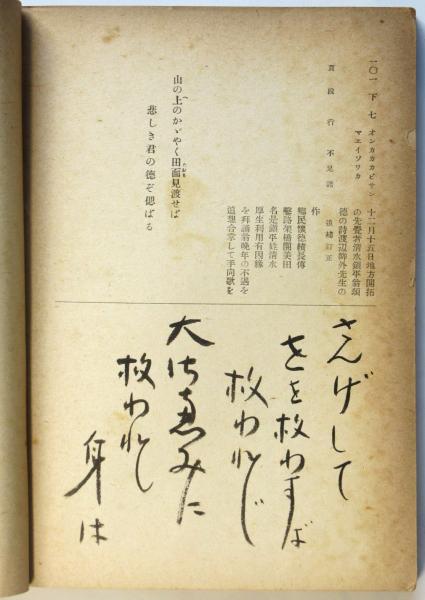 一〇一 下 七 オンカカカビサン
マエイソワカ
直段行不足諸 後補訂正
十二月十五日地方開拓
の先覺者清水鎭平翁頌
德の詩渡辺幹外先生の
作
鄕民懷德積長傳
鑿路架橋開美田
名是鎭平姓清水
厚生利用有因緣
を拜誦翁晩年の不遇を
追想合掌して手向歌を
山の上のかゞやく田面見渡せば
たおも
悲しき君の德ぞ偲ばる
さんげして
きを救わずば
救われじ
大御惠みに
救われし
身は